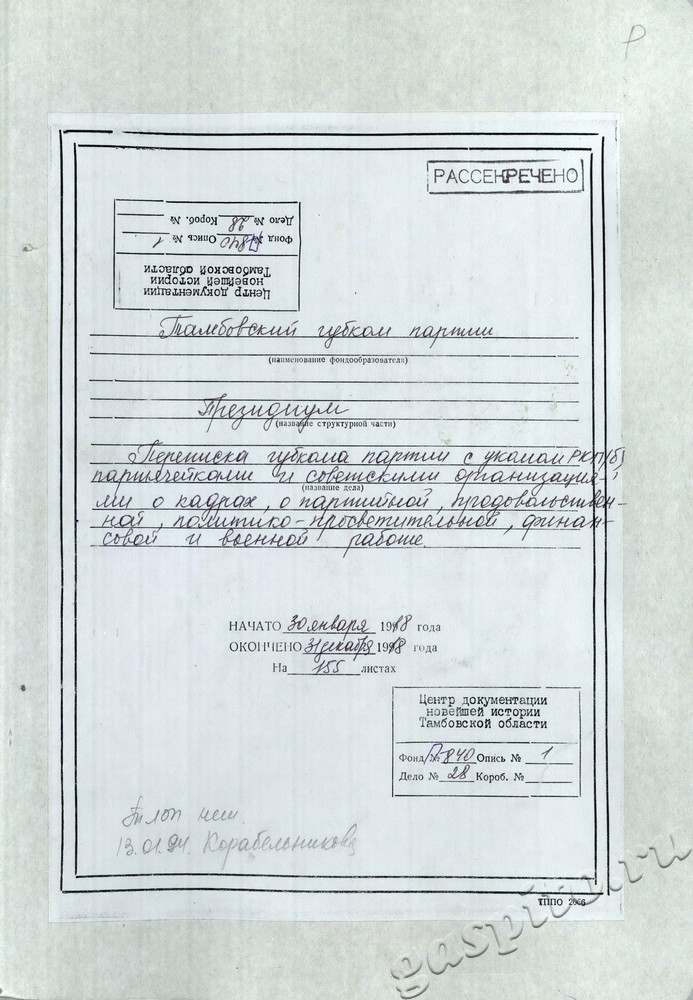 Р
РАССЕКРЕЧЕНО
Центр документации
новейшей истории
Тамбовской области
Фонд № П-840 Опись № 1
Дело № 28 Короб. №
Тамбовский губком партии
(наименование фондообразователя)
Президиум
(название структурной части)
Переписка губкома партии с укомом РКП(б)
партячейками и советскими организация-
(название дела)
ми о кадрах, о партийной, продовольствен-
ной, политико-просветительной, финан-
совой и военной работе.
НАЧАТО 30 января 1918 года
ОКОНЧЕНО 31 декабря 1918 года
На 155 листах
Центр документации
новейшей истории
Тамбовской области
Фонд № П-840 Опись № 1
Дело № 28 Короб. №
нет.
13.01.94. Корабельникова
ТППО 2666
gaspito.ru